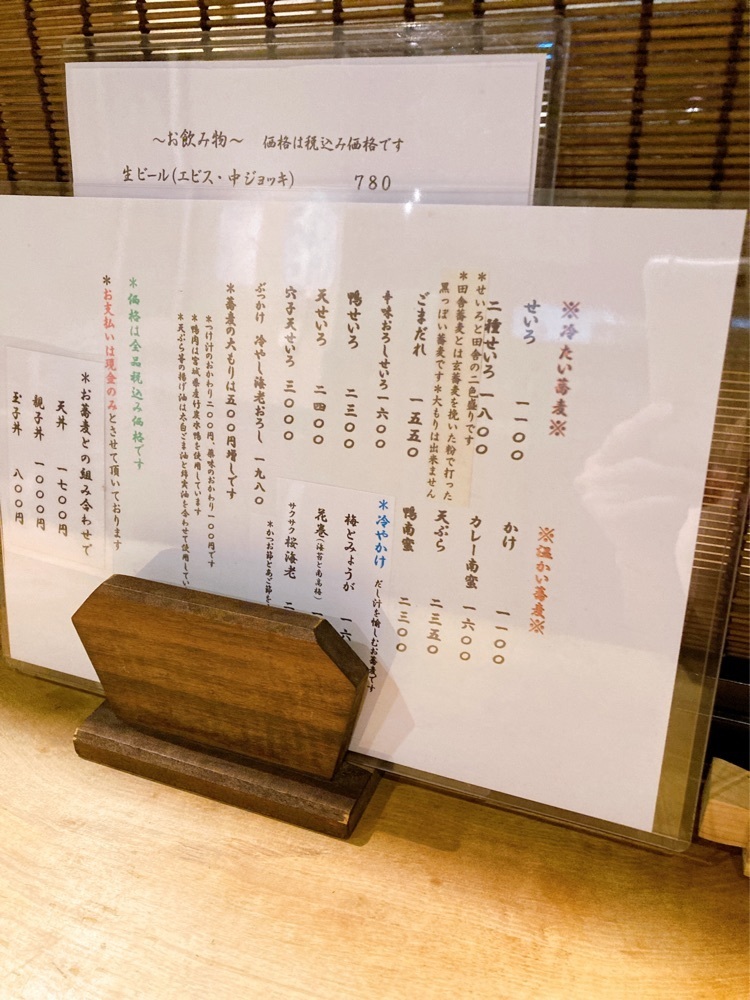 ～お飲み物～　価格は税込み価格です
生ビール(エビス・中ジョッキ)　780
※冷たい蕎麦※
せいろ　一一〇〇
二種せいろ　一八〇〇
＊せいろと田舎の二色盛りです
＊田舎蕎麦とは玄蕎麦を挽いた粉で打った
黒っぽい蕎麦です＊大もりは出来ません
ごまだれ　一五五〇
辛味おろしせいろ　一六〇〇
鴨せいろ　二三〇〇
天せいろ　二四〇〇
穴子天せいろ　三〇〇〇
ぶっかけ　冷やし海老おろし　一九八〇
＊蕎麦の大もりは五〇〇円増しです
＊つけ汁のおかわり二〇〇円、薬味のおかわり一〇〇円です
＊鴨肉は宮城県産竹炭水鴨を使用しています
＊天ぷら等の揚げ油は太白ごま油と綿実油を合わせて使用してい
＊価格は全品税込み価格です
＊お支払いは現金のみとさせて頂いております
※温かい蕎麦※
かけ　一一〇〇
カレー南蛮　一六〇〇
天ぷら　二三五〇
鴨南蛮　二三〇〇
＊冷やかけ　だし汁を愉しむお蕎麦です
梅とみょうが　一六
花巻(海苔と南高梅)　一
サクサク桜海老　二
＊かつお節とあご節を
＊お蕎麦との組み合わせで
天丼　一七〇〇円
親子丼　一〇〇〇円
玉子丼　八〇〇円